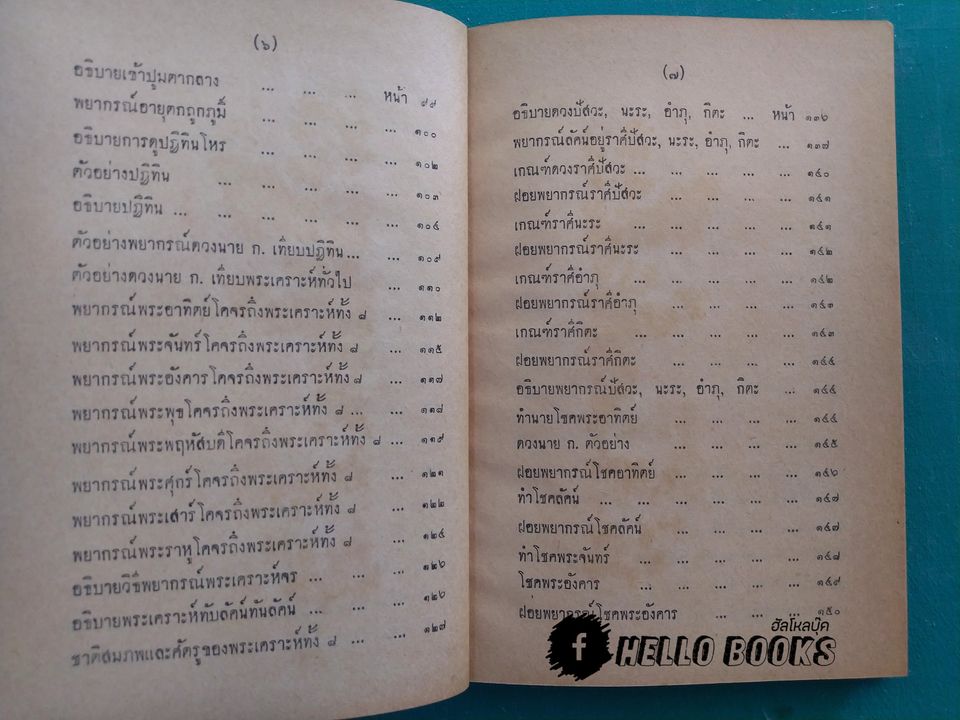 (๖)
อธิบายเข้าปูมตากลาง ... ... ... หน้า ๙๙
พยากรณ์อายุตกถูกภูมิ์ ... ... ... ... ๑๐๐
อธิบายการดูปฏิทินโหร ... ... ... ... ๑๐๒
ตัวอย่างปฏิทิน ... ... ... ... ... ๑๐๓
อธิบายปฏิทิน ... ... ... ... ... ๑๐๔
ตัวอย่างพยากรณ์ดวงนาย ก. เทียบปฏิทิน ... ... ๑๐๙
ตัวอย่างดวงนาย ก. เทียบพระเคราะห์ทั่วไป ... ๑๑๐
พยากรณ์พระอาทิตย์โคจรถึงพระเคราะห์ทั้ง ๘ ... ๑๑๒
พยากรณ์พระจันทร์โคจรถึงพระเคราะห์ทั้ง ๘ ... ๑๑๕
พยากรณ์พระอังคารโคจรถึงพระเคราะห์ทั้ง ๘ ... ๑๑๗
พยากรณ์พระพุธโคจรถึงพระเคราะห์ทั้ง ๘ ... ... ๑๑๘
พยากรณ์พระพฤหัสบดีโคจรถึงพระเคราะห์ทั้ง ๘ ... ๑๑๙
พยากรณ์พระศุกร์โคจรถึงพระเคราะห์ทั้ง ๘ ... ๑๒๑
พยากรณ์พระเสาร์โคจรถึงพระเคราะห์ทั้ง ๘ ... ๑๒๒
พยากรณ์พระราหูโคจรถึงพระเคราะห์ทั้ง ๘ ... ๑๒๔
อธิบายวิธีพยากรณ์พระเคราะห์จร ... ... ... ๑๒๖
อธิบายพระเคราะห์ทับลัคน์ทันลัคน์ ... ... ... ๑๒๖
ชาติสมภพและศัตรูของพระเคราะห์ทั้ง ๘ ... ... ๑๒๗
(๗)
อธิบายดวงปัสวะ, นะระ, อำภุ, กิตะ ... หน้า ๑๓๖
พยากรณ์ลัคน์อยู่ราศีปัสวะ, นะระ, อำภุ, กิตะ ... ๑๓๗
เกณฑ์ดวงราศีปัสวะ ... ... ... ... ... ๑๔๐
ฝอยพยากรณ์ราศีปัสวะ ... ... ... ... ๑๔๑
เกณฑ์ราศีนะระ ... ... ... ... ... ๑๔๑
ฝอยพยากรณ์ราศีนะระ ... ... ... ... ๑๔๒
เกณฑ์ราศีอำภุ ... ... ... ... ... ๑๔๒
ฝอยพยากรณ์ราศีอำภุ ... ... ... ... ๑๔๓
เกณฑ์ราศีกิตะ ... ... ... ... ... ๑๔๓
ฝอยพยากรณ์ราศีกิตะ ... ... ... ... ๑๔๔
อธิบายพยากรณ์ปัสวะ, นะระ, อำภุ, กิตะ ... ๑๔๔
ทำนายโชคพระอาทิตย์ ... ... ... ... ๑๔๔
ดวงนาย ก. ตัวอย่าง ... ... ... ... ๑๔๕
ฝอยพยากรณ์โชคอาทิตย์ ... ... ... ... ๑๔๖
ทำโชคลัคน์ ... ... ... ... ... ... ๑๔๗
ฝอยพยากรณ์โชคลัคน์ ... ... ... ... ๑๔๗
ทำโชคพระจันทร์ ... ... ... ... ... ๑๔๘
โชคพระอังคาร ... ... ... ... ... ๑๔๙
ฝอยพยากรณ์โชคพระอังคาร ... ... ... ๑๕๐
ฮัลโหลบุ๊ค
f HELLO BOOKS